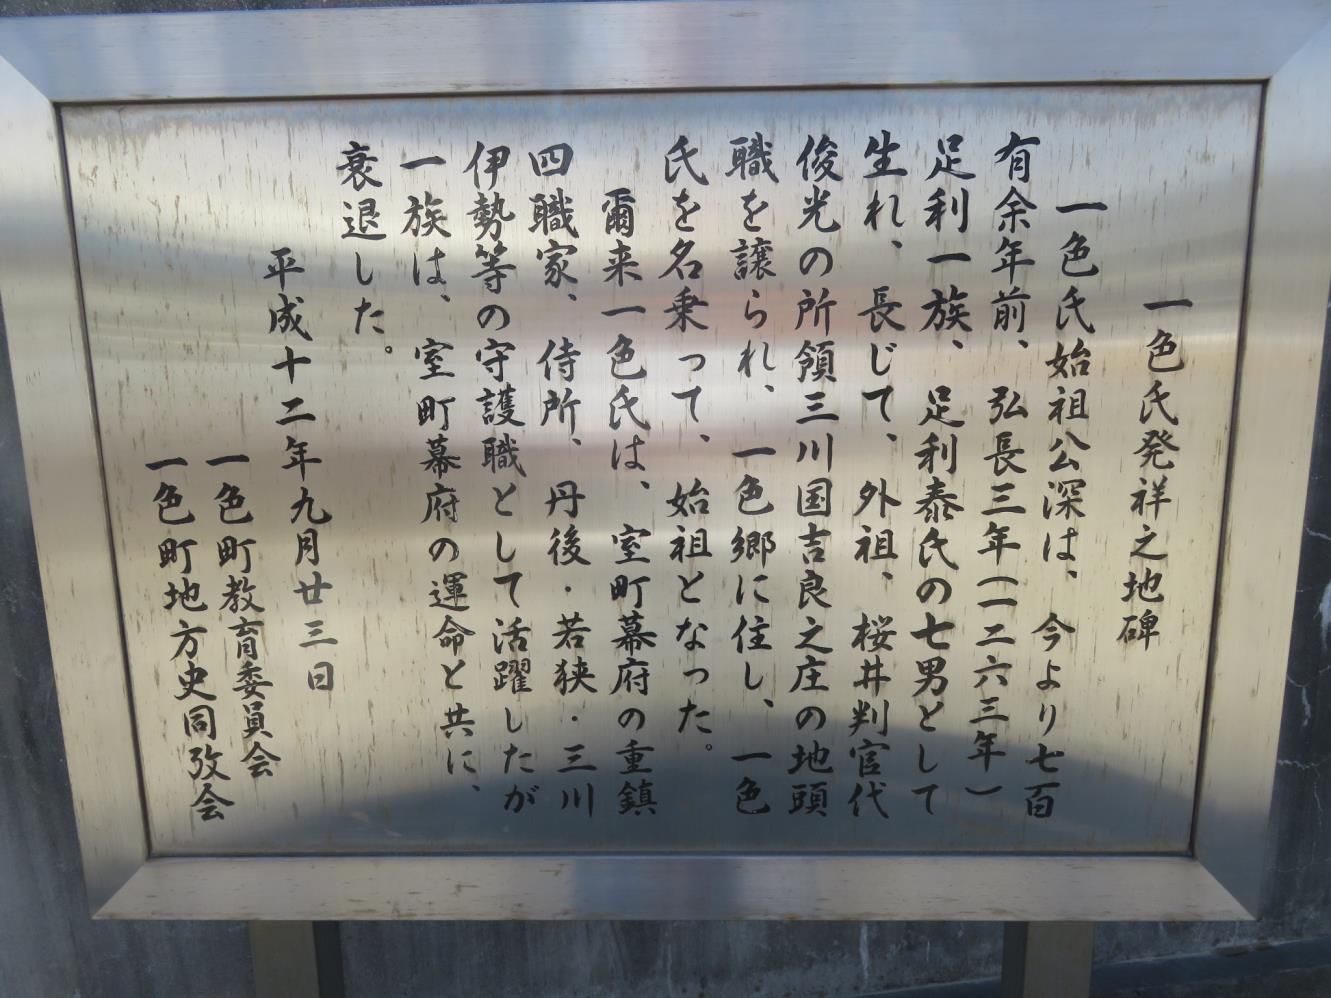 一色氏発祥之地碑
一色氏始祖公深は、今より七百
有余年前、弘長三年(一二六三年)
足利一族、足利泰氏の七男として
生れ、長じて、外祖、桜井判官代
俊光の所領三川国吉良之庄の地頭
職を譲られ、一色郷に住し、一色
氏を名乗って、始祖となった。
爾来一色氏は、室町幕府の重鎮
四職家、侍所、丹後・若狭・三川
伊勢等の守護職として活躍したが
一族は、室町幕府の運命と共に、
衰退した。
平成十二年九月廿三日
一色町教育委員会
一色町地方史同攷会